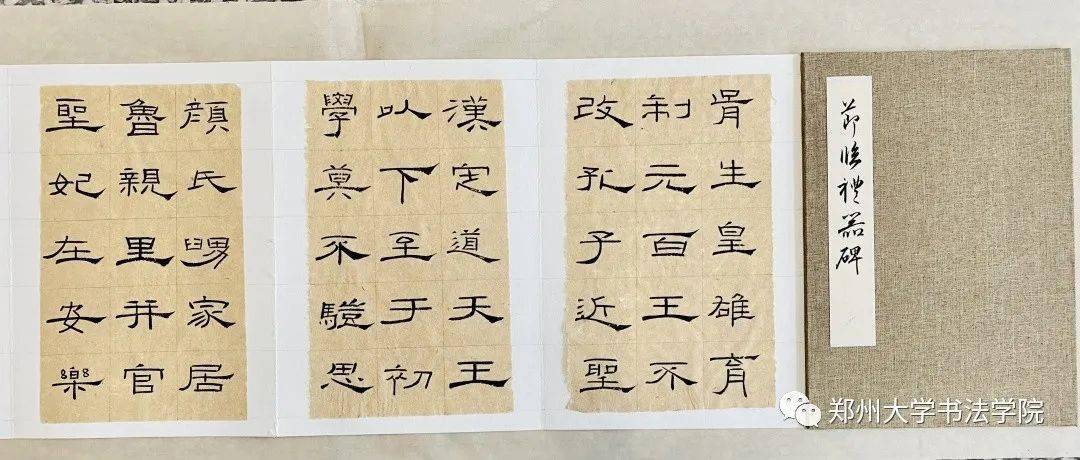 節臨禮器碑
胥生皇雄育
制元百王不
改孔子近聖
漢定道天王
以下至于初
學莫不驥思
顏氏舅家居
魯親里并官
聖妃在安樂
郑州大学书法学院